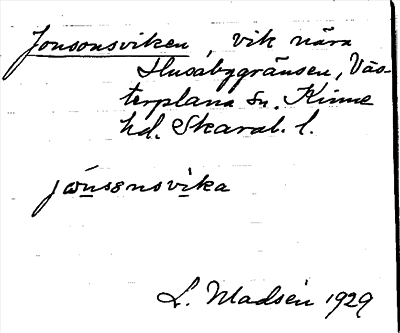 Jonsonsviken, vik nära
Husabygränsen, Väs-
terplana sn. Kinne
hd. Skarab. l.
jónsɘnsvika
L. Madsén 1929